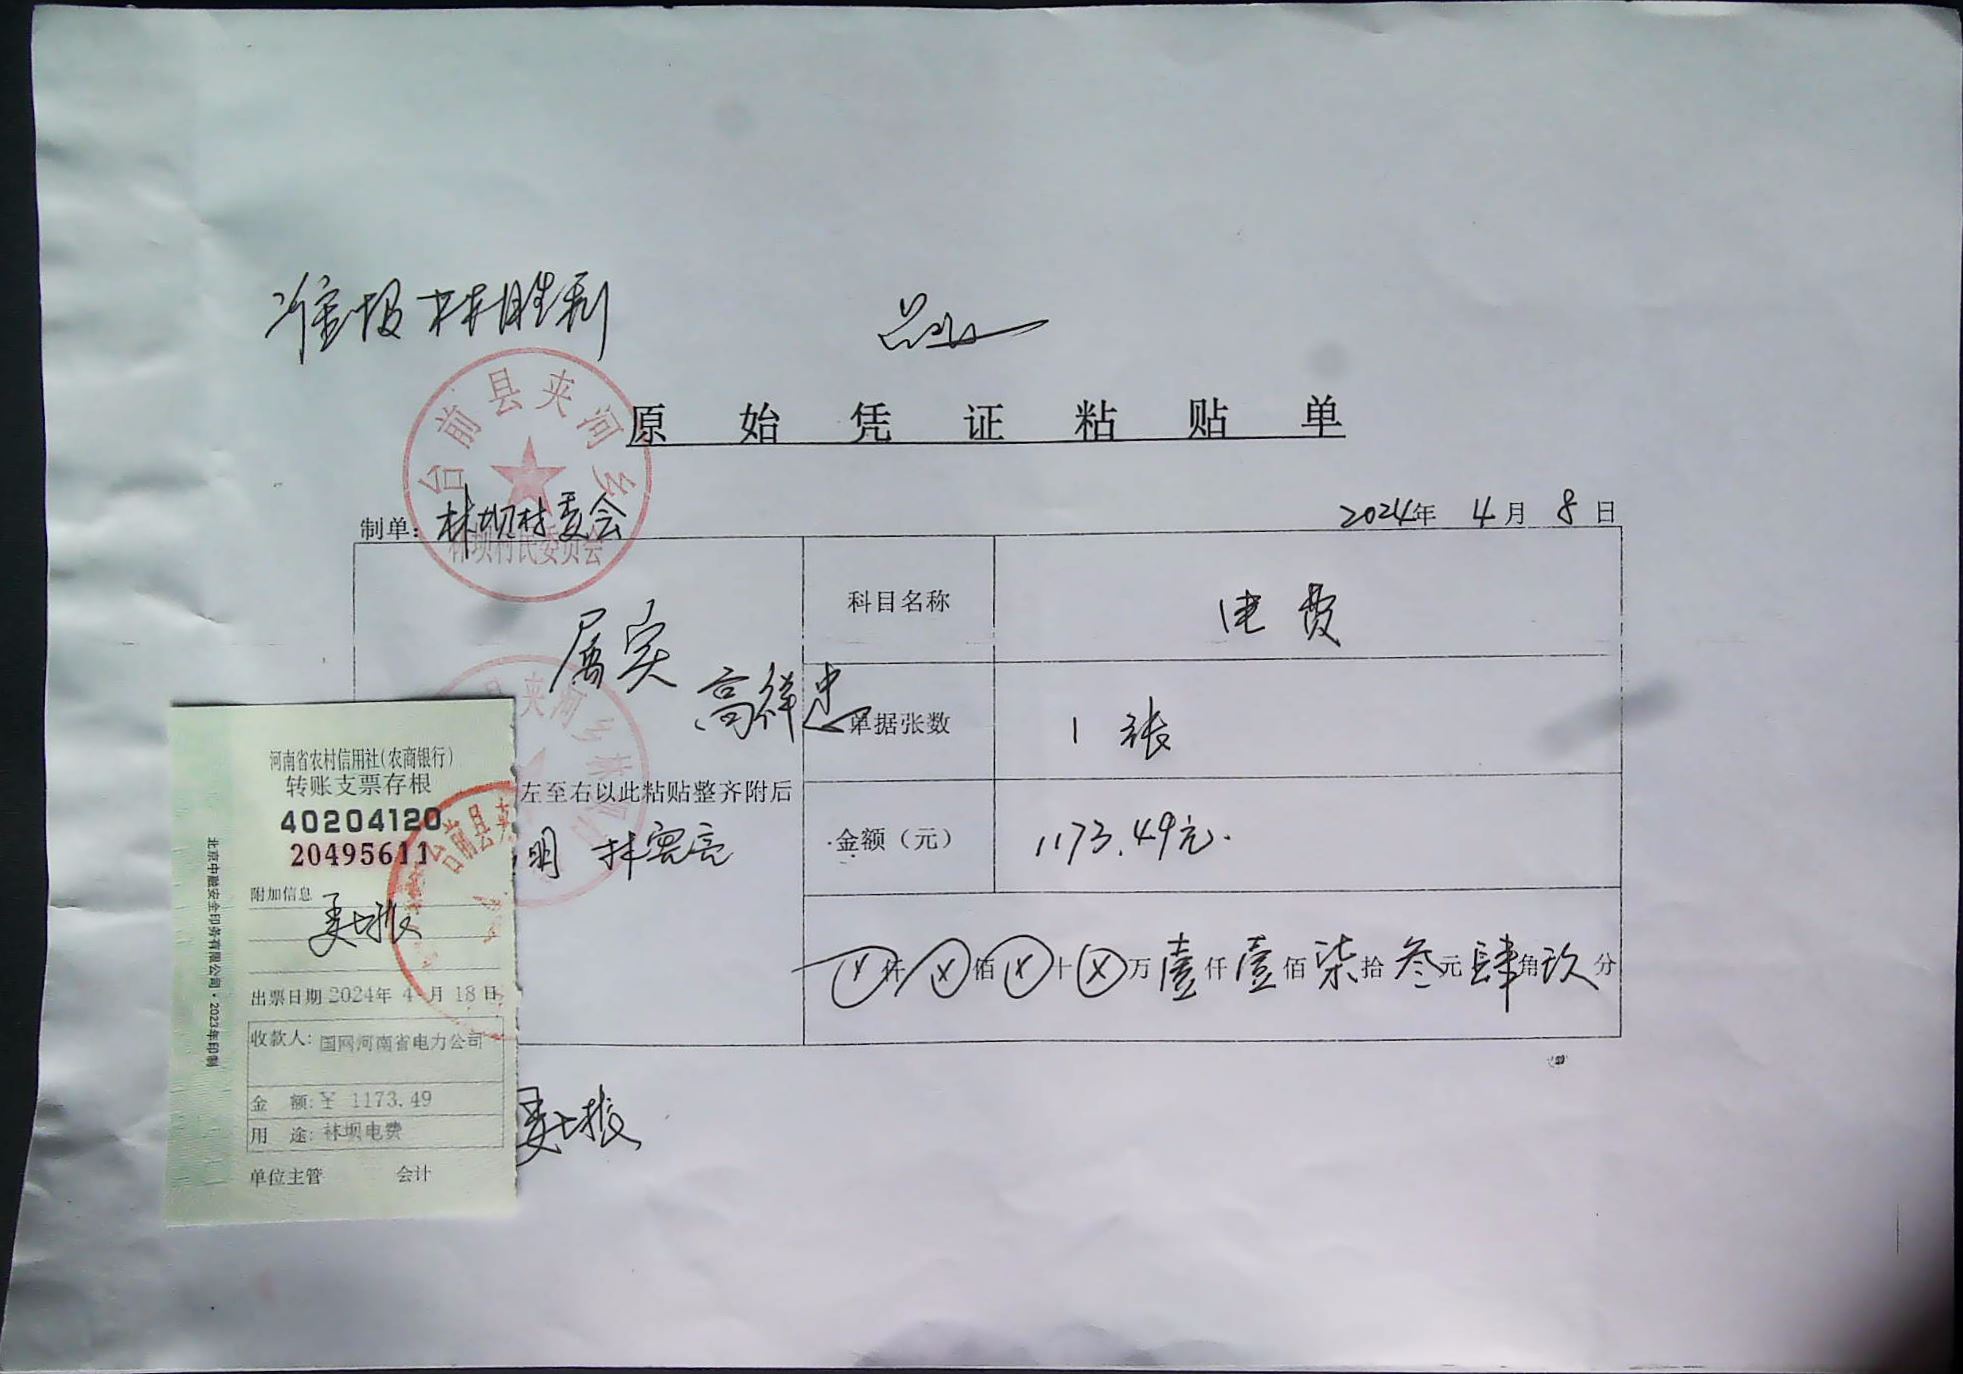 准报 林胜利
原始凭证粘贴单
台前县夹河乡
林坝村民委员会
制单：林坝村委会
2024年 4月 8日
科目名称 电费
属实
高祥忠
单据张数 1 张
左至右以此粘贴整齐附后
明 林宪亮
金额（元） 1173.49元.
仟 佰 十 万 壹仟壹佰柒拾叁元肆角玖分
河南省农村信用社(农商银行)
转账支票存根
40204120
20495611
台前县夹
附加信息
出票日期 2024年 4 月 18 日
收款人: 国网河南省电力公司
金 额: ¥ 1173.49
用 途: 林坝电费
单位主管 会计
北京中融安全印务有限公司·2023年印制